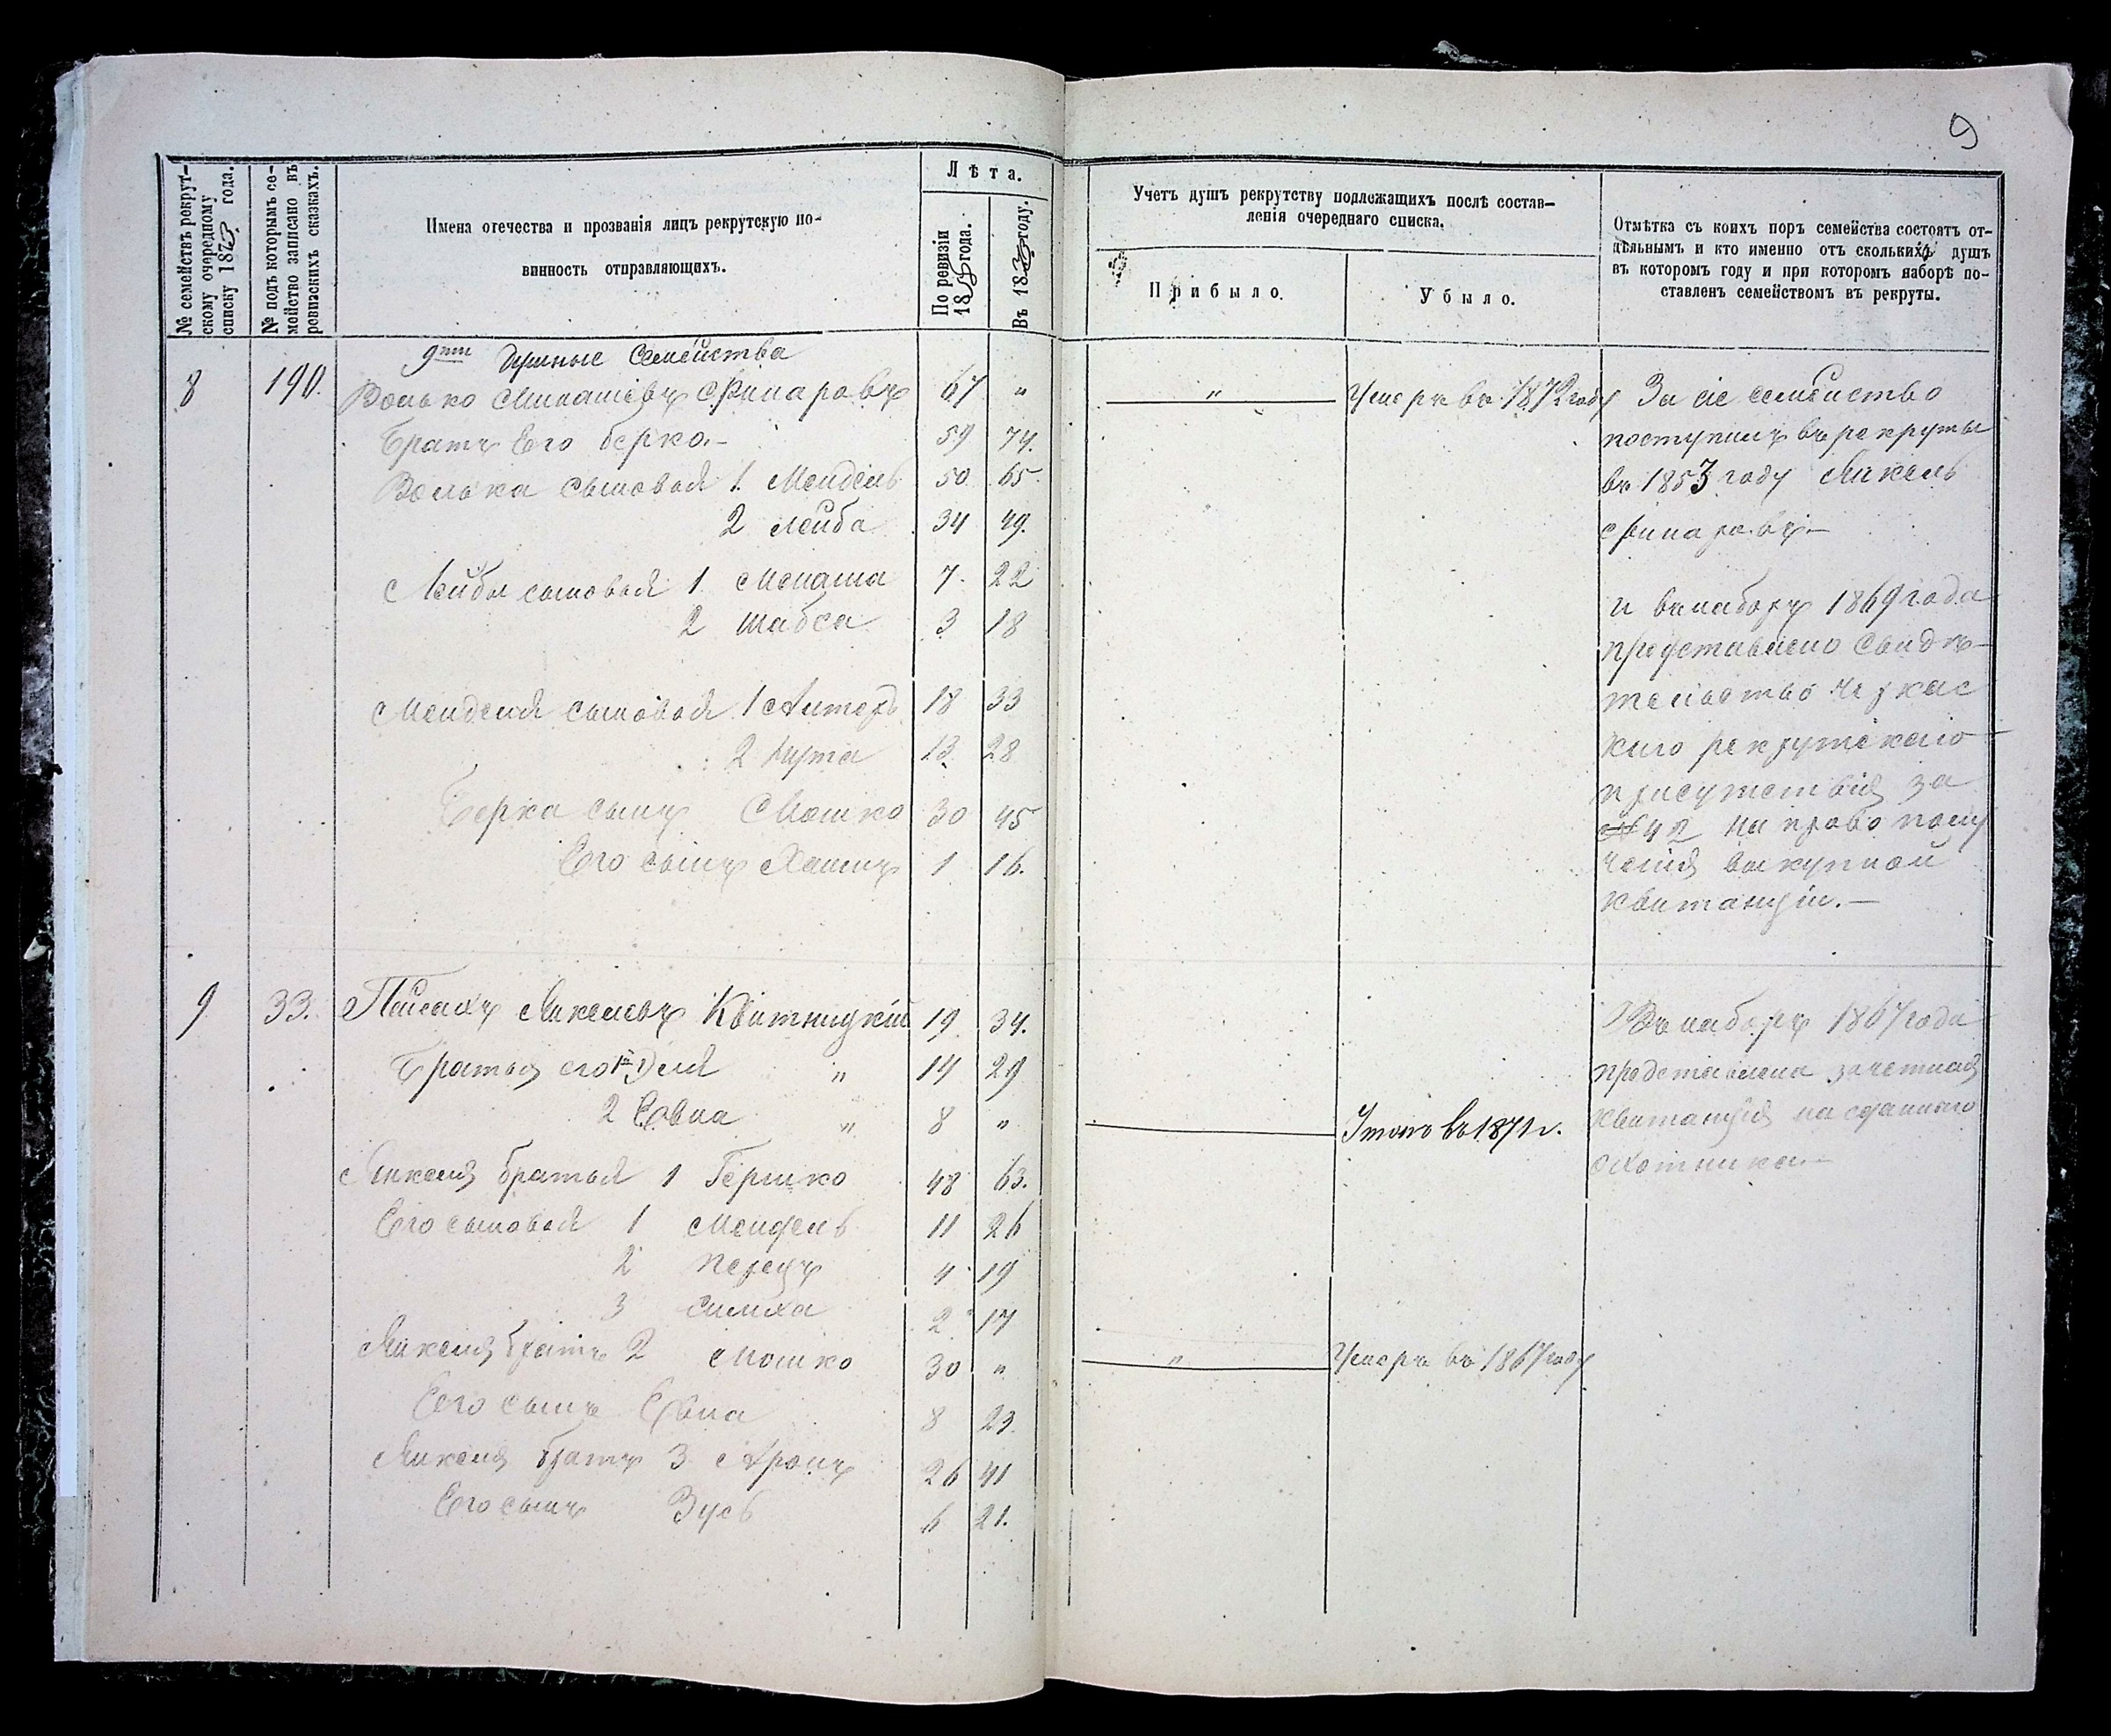 9
№ семействъ рекрут-
скому очередному
списку 1873 года.
№ подъ которымъ се-
мейство записано въ
ревизскихъ сказкахъ.
Имена отечества и прозванія лицъ рекрутскую по-
винность отправляющихъ.
Лѣта.
По ревизіи
18 года.
Въ 1873 году.
Учетъ душъ рекрутству подлежащихъ послѣ состав-
ленія очереднаго списка.
Прибыло.
Убыло.
Отмѣтка съ коихъ поръ семейства состоятъ от-
дѣльнымъ и кто именно отъ сколькихъ душъ
въ котором году и при котором наборѣ по-
ставленъ семействомъ въ рекруты.
9ти душные Семейства
8 190. Волько Минашевъ 67 " " Умеръ въ 1872 году
Братъ Его Берко.- 59 74.
Волька сыновья 1. Мендель 50 65
2 Лейба 34 49.
Лейбы сыновья 1 Менаша 7. 22
2 Шабса 3 18
Менделя сыновья 1 Алтеръ 18 33
2 13 28
Берка сынъ Мошко 30 45
Его сынъ Хаимъ 1 16.
За сіе семейство
поступилъ въ рекруты
въ 1853 году Янкель
и въ наборъ 1869 года
представлено Свидѣ-
тельство Черкас
каго рекрутскаго
присутствія за
№ 42 на право полу
ченія выкупной
квитанціи.—
9 33. Пейсахъ Янкелевъ Квитницкій 19 34.
Братья его 1й Эля " 14 29
2 Евна " 8 " Утонъ въ 1871 г.
Янкеля братья 1 Гершко 48 63.
Его сыновья 1 Мендель 11 26
2 Перецъ 4 19
3 Симха 2 17
Янкеля братъ 2 Мошко 30 " " Умеръ въ 1867 году
Его сынъ Евна 8 23
Янкеля братъ 3 Аронъ 26 41
Его сынъ Зусь 6 21.
Въ наборъ 1867 года
представлена зачетная
Квитанція на сданнаго
охотника.—